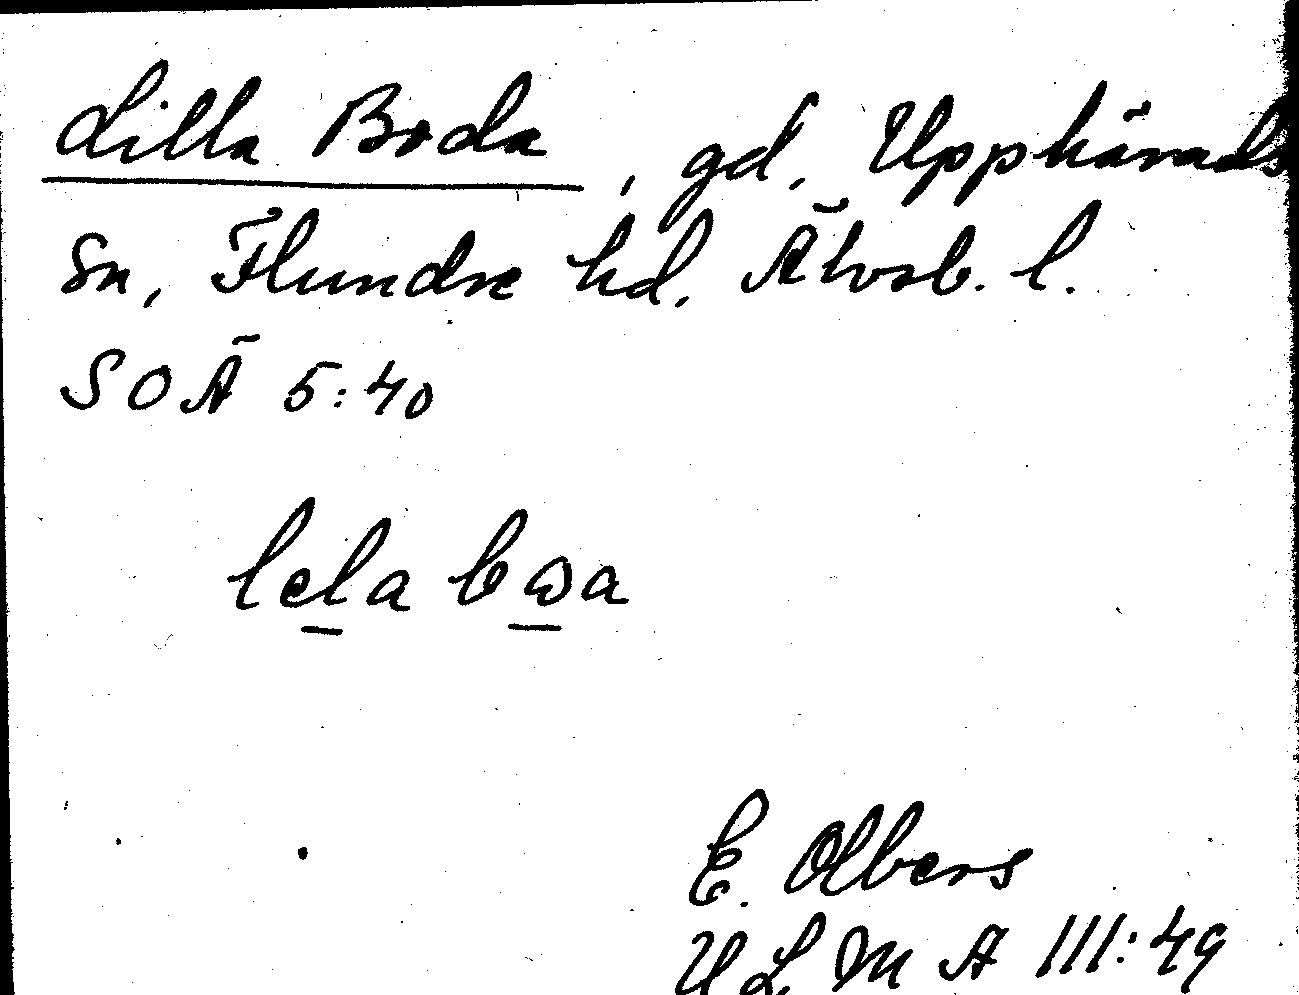 Lilla Boda, gd, Upphärads
sn, Flundre hd. Älvsb. l.
SOÄ 5:40
lela bωa
E. Olbers
ULMA III:49